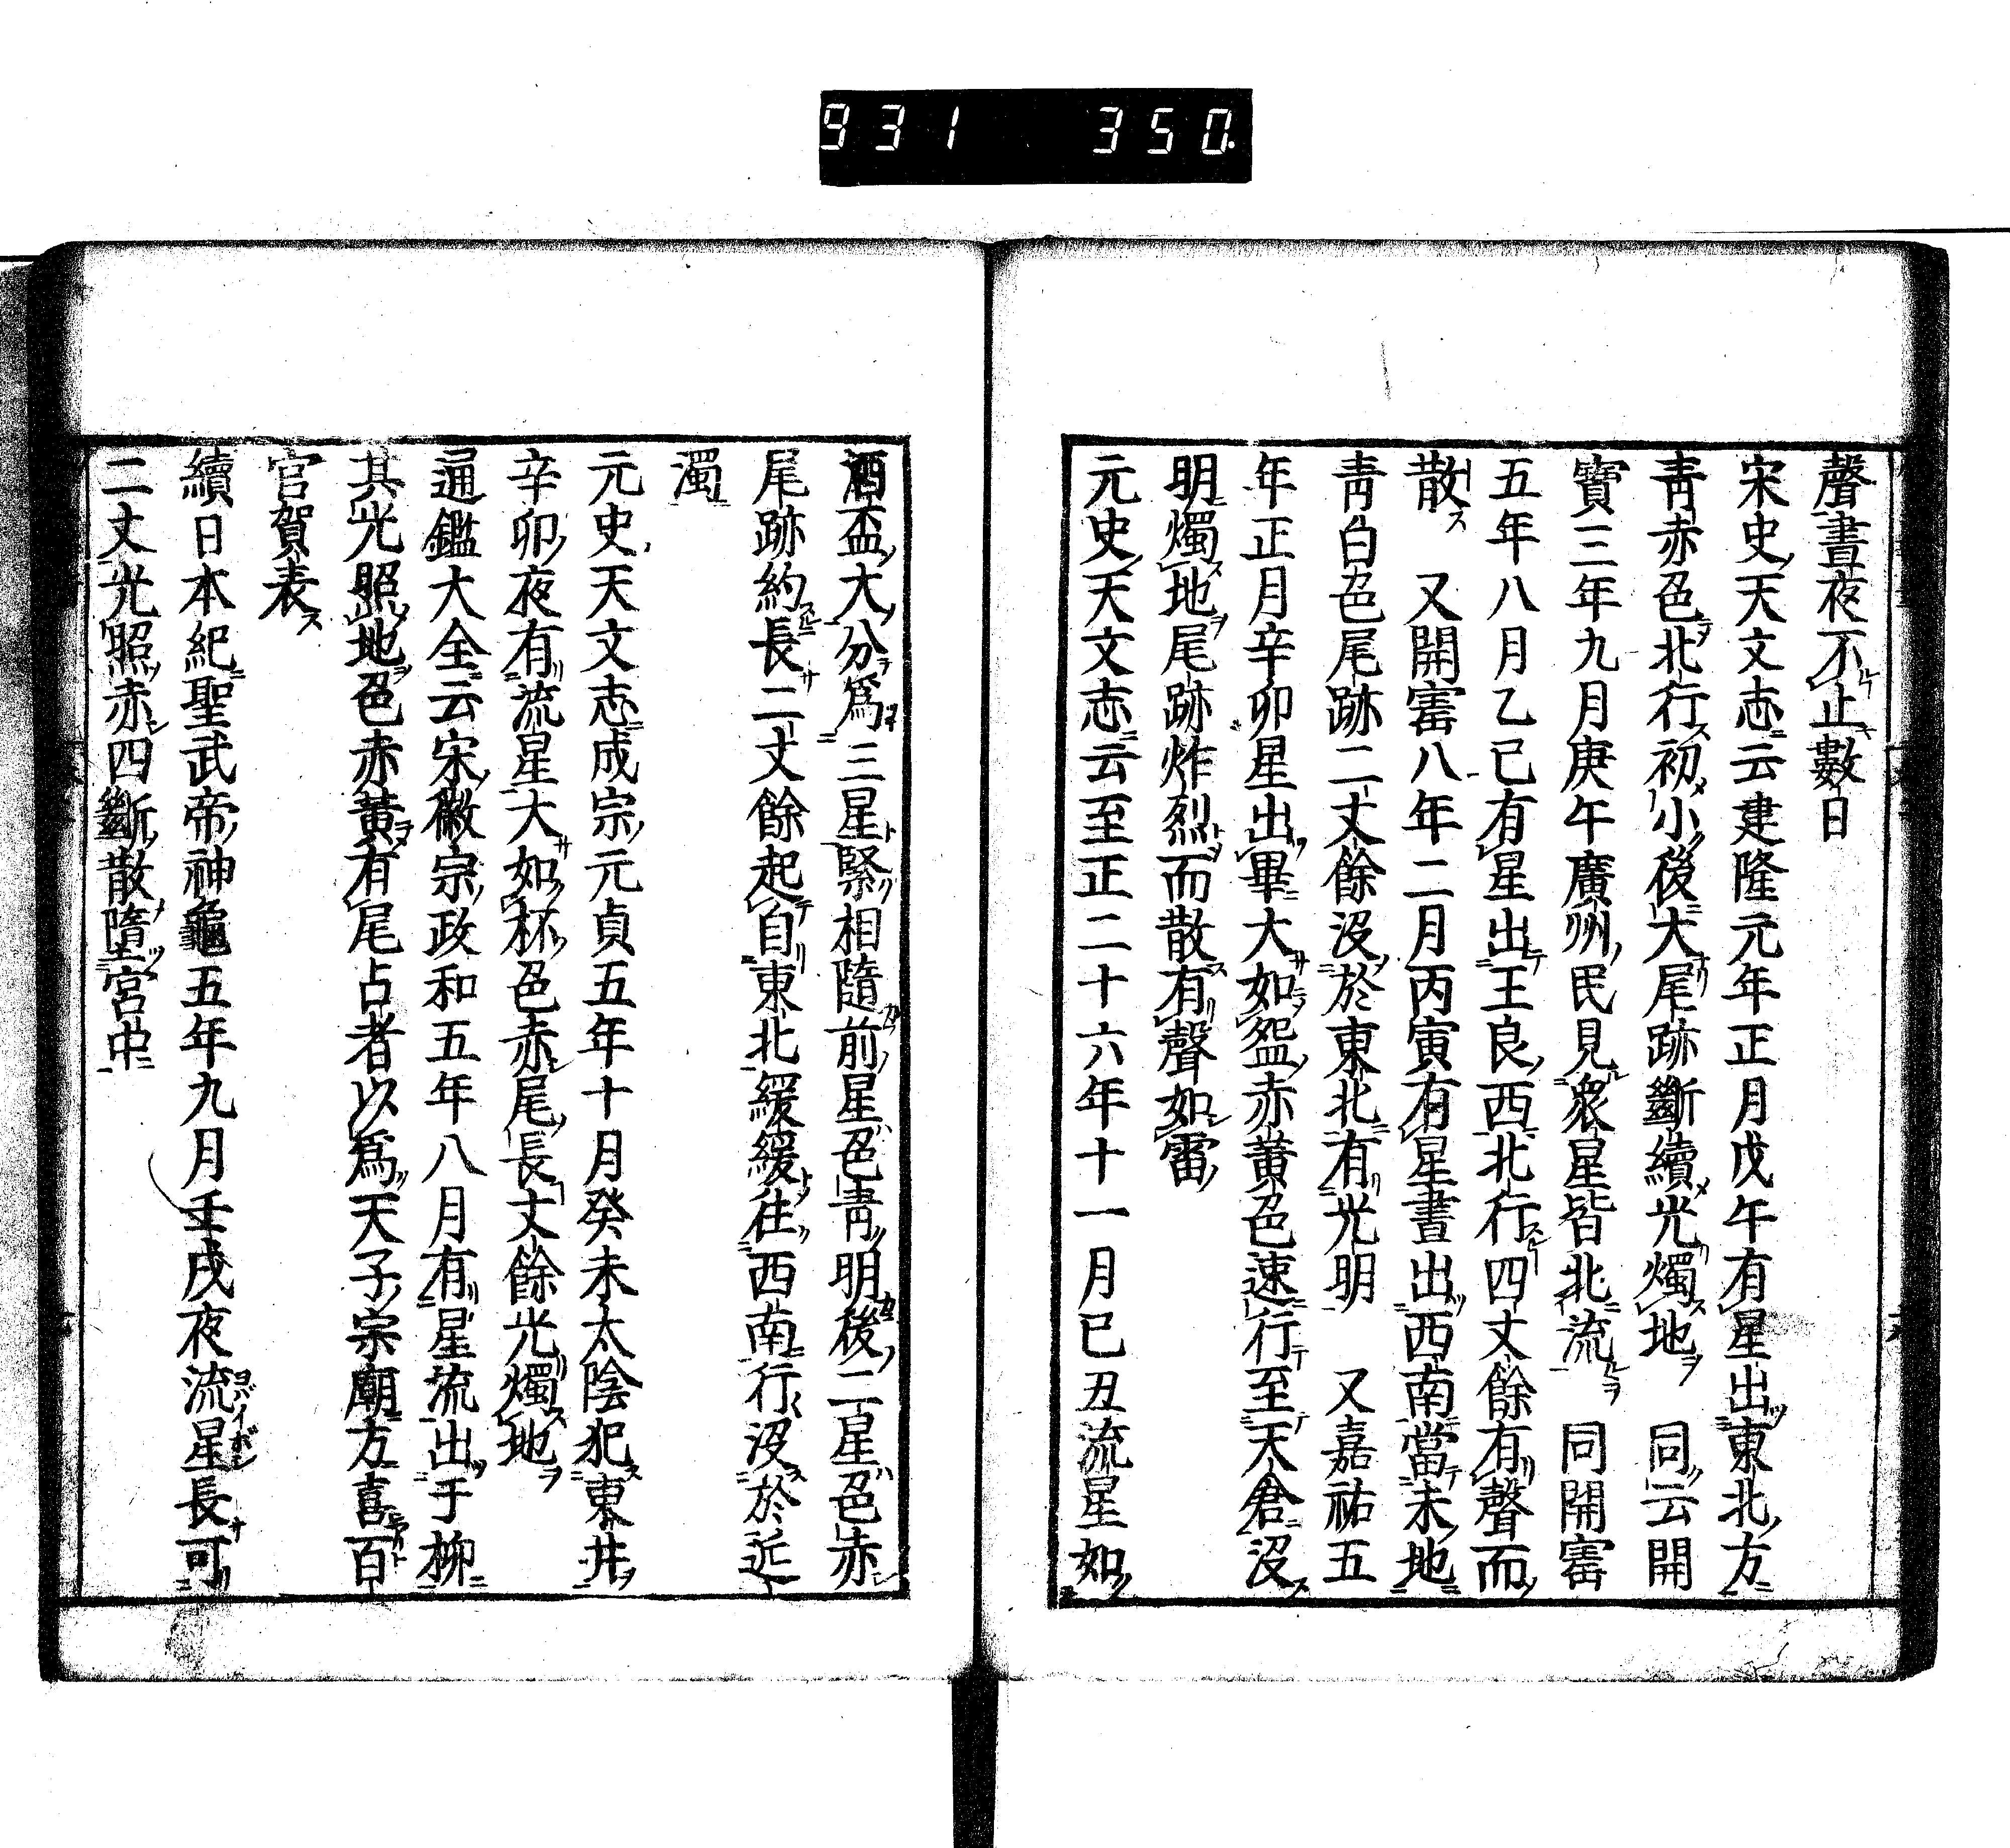 931 350.
聲晝夜不止數日
宋史天文志云建隆元年正月戊午有星出東北方
靑赤色北行初小後大尾跡斷續光燭地 同云開
寶三年九月庚午廣州民見衆星皆北流 同開寶
五年八月乙巳有星出王良西北行四丈餘有聲而
散 又開寶八年二月丙寅有星晝出西南當未地
靑白色尾跡二丈餘沒於東北有光明 又嘉祐五
年正月辛卯星出畢大如盌赤黃色速行至天倉沒
明燭地尾跡炸烈而散有聲如雷
元史天文志云至正二十六年十一月已丑流星如
酒盃大分爲三星緊相隨前星色靑明後二星色赤
尾跡約長二丈餘起自東北緩緩往西南行沒於近
濁
元史天文志成宗元貞五年十月癸未太陰犯東井
辛卯夜有流星大如杯色赤尾長丈餘光燭地
通鑑大全云宋徽宗政和五年八月有星流出于柳
其光照地色赤黃有尾占者以爲天子宗廟方喜百
官賀表
續日本紀聖武帝神龜五年九月壬戌夜流星長可
二丈光照赤四斷散墮宮中